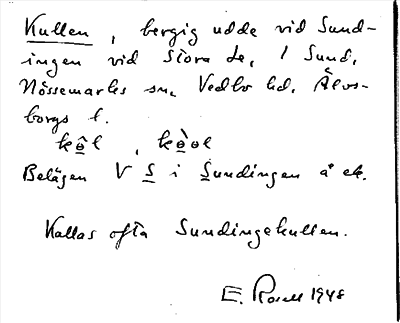 Kullen, bergig udde vid Sund-
ingen vid Stora Le, 1 Sund,
Nössemarks sn, Vedbo hd, Älvs-
borgs l.
kôl, kòol
Belägen V S i Sundingen å ek.
Kallas ofta Sundingekullen.
E. Rosell 1948